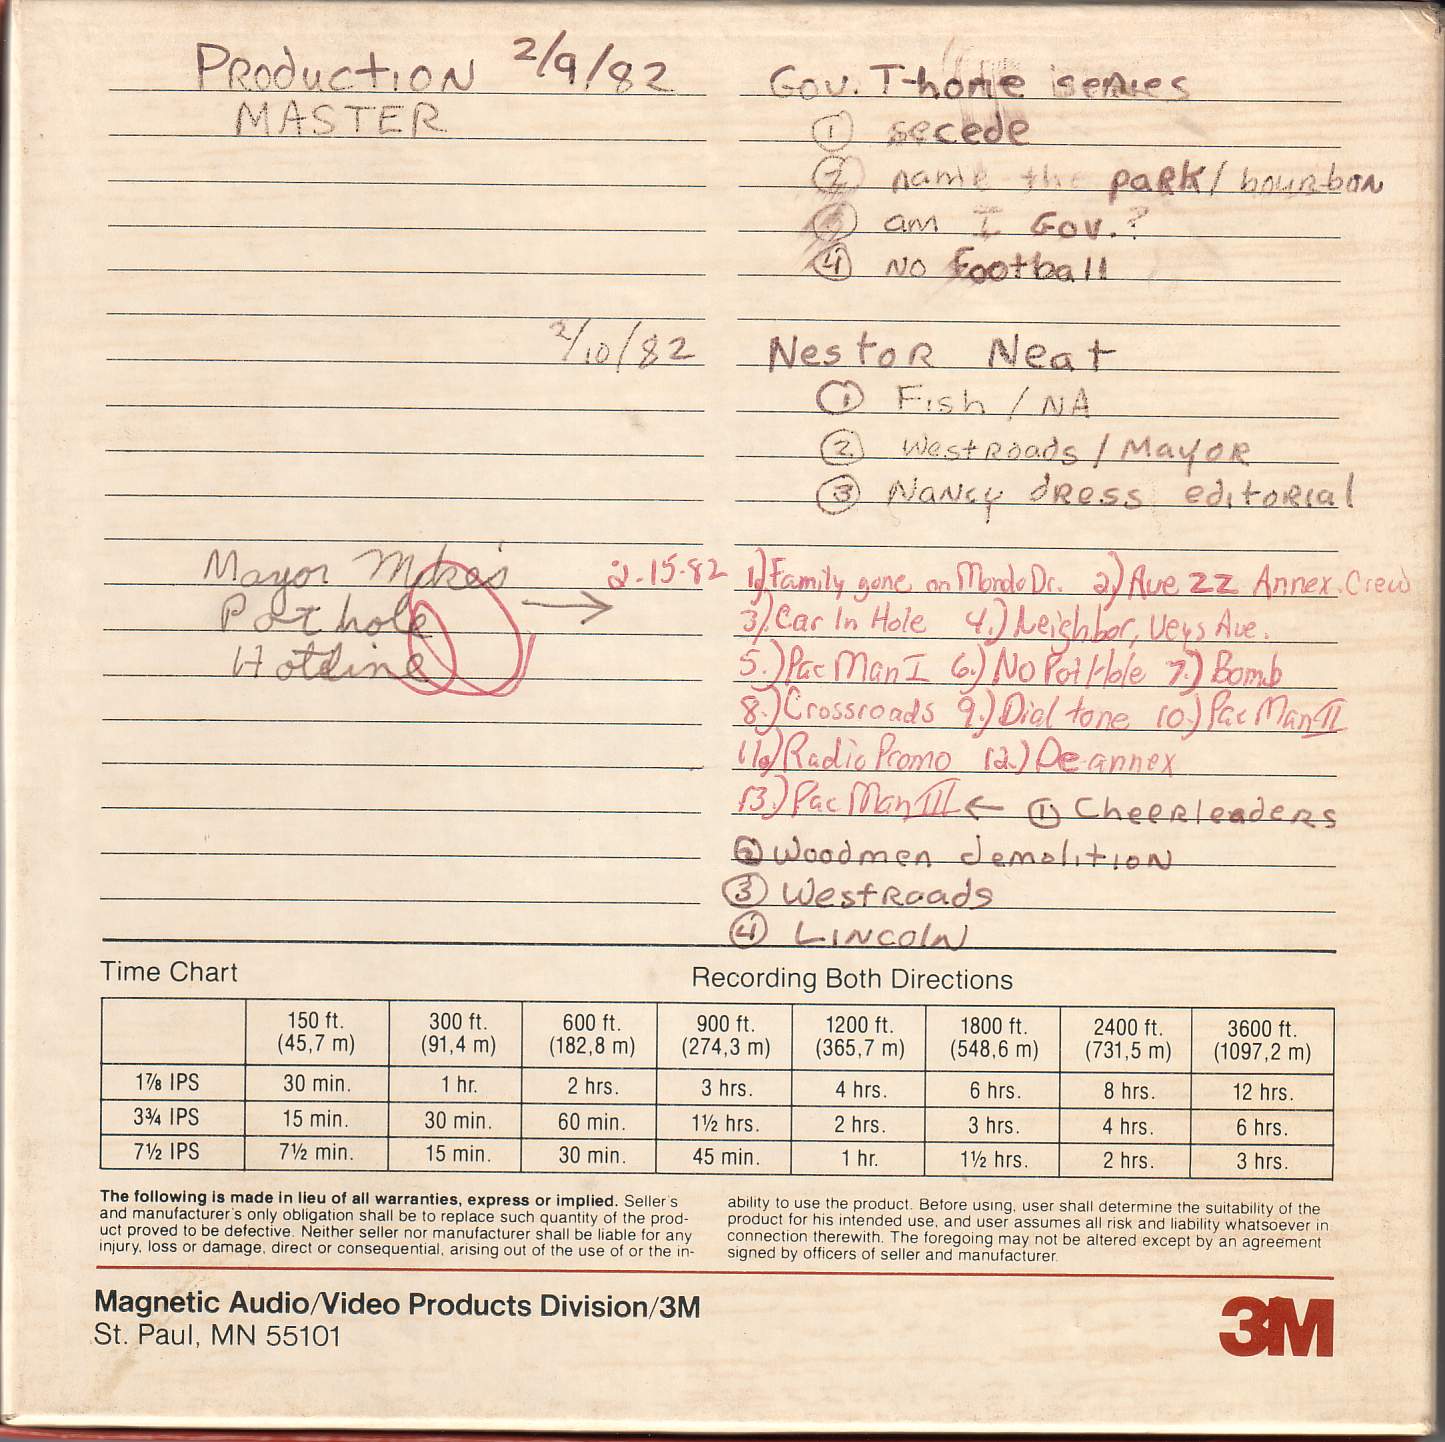 PRODUCTION 2/9/82
MASTER
Gov. Thone series
① secede
② name the park/ bourbon
③ am I Gov.?
④ No Football
2/10/82 Nestor Neat
① Fish / NA
② Westroads / Mayor
③ Nancy dress editorial
Mayor Mike's
Pothole
Hotline
→ 2.15.82 1.) Family gone on Mondo Dr. 2.) Ave ZZ Annex. Crew
3.) Car In Hole 4.) Neighbor, Veys Ave.
5.) Pac Man I 6.) No Pot Hole 7.) Bomb
8.) Crossroads 9.) Dial tone 10.) Pac Man II
11.) Radio Promo 12.) De-annex
13.) Pac Man III ← ① Cheerleaders
② Woodmen demolition
③ Westroads
④ LINCOLN
Time Chart Recording Both Directions
150 ft. 300 ft. 600 ft. 900 ft. 1200 ft. 1800 ft. 2400 ft. 3600 ft.
(45,7 m) (91,4 m) (182,8 m) (274,3 m) (365,7 m) (548,6 m) (731,5 m) (1097,2 m)
1⅞ IPS 30 min. 1 hr. 2 hrs. 3 hrs. 4 hrs. 6 hrs. 8 hrs. 12 hrs.
3¾ IPS 15 min. 30 min. 60 min. 1½ hrs. 2 hrs. 3 hrs. 4 hrs. 6 hrs.
7½ IPS 7½ min. 15 min. 30 min. 45 min. 1 hr. 1½ hrs. 2 hrs. 3 hrs.
The following is made in lieu of all warranties, express or implied. Seller's
and manufacturer's only obligation shall be to replace such quantity of the prod-
uct proved to be defective. Neither seller nor manufacturer shall be liable for any
injury, loss or damage, direct or consequential, arising out of the use of or the in-
ability to use the product. Before using, user shall determine the suitability of the
product for his intended use, and user assumes all risk and liability whatsoever in
connection therewith. The foregoing may not be altered except by an agreement
signed by officers of seller and manufacturer.
Magnetic Audio/Video Products Division/3M
St. Paul, MN 55101
3M